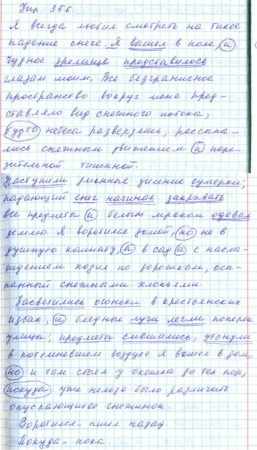 Упр. 366.
Я всегда любил смотреть на тихое
падение снега. Я вышел в поле, и
чудное зрелище представилось
глазам моим. Все безграничное
пространство вокруг меня пред-
ставляло вид снежного потока,
будто небеса разверзлись, рассыпа-
лись снежным движением и пора-
зительной тишиной.
Наступили длинные зимние сумерки;
падающий снег начинал закрывать
все предметы и белым мраком одевал
землю. Я воротился домой, но не в
душную комнату, а в сад и с насла-
ждением ходил по дорожкам, осы-
панный снежными хлопьями.
Засветились огоньки в крестьянских
избах, и бледные лучи легли поперек
улицы; предметы смешались, утонули
в потемневшем воздухе. Я вошел в дом,
но и там стоял у окошка до тех пор,
покуда уже нельзя было различить
опускающихся снежинок.
Воротился - пошел назад.
Покуда - пока.